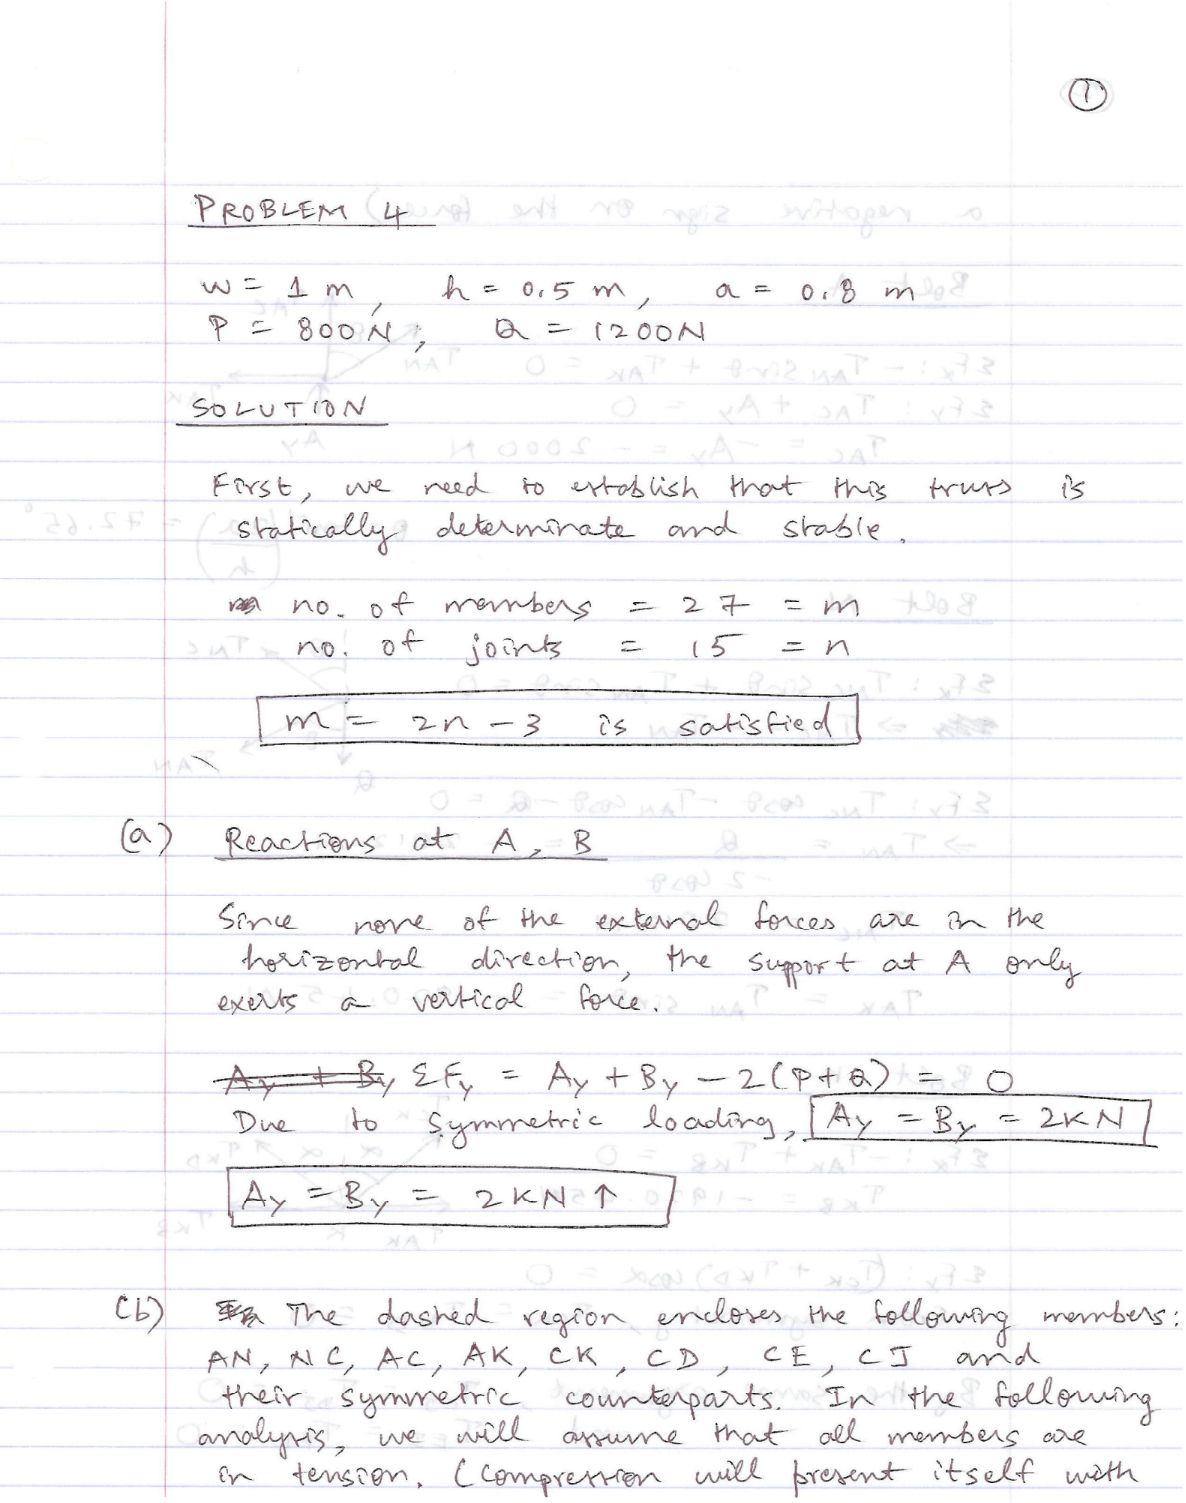 1
PROBLEM 4
w = 1 m, h = 0.5 m, a = 0.8 m
P = 800 N, Q = 1200N
SOLUTION
First, we need to establish that this truss is
statically determinate and stable.
no. of members = 27 = m
no. of joints = 15 = n
m = 2n - 3 is satisfied
(a) Reactions at A, B
Since none of the external forces are in the
horizontal direction, the support at A only
exerts a vertical force.
Ay + By ΣFy = Ay + By - 2(P+Q) = 0
Due to symmetric loading, Ay = By = 2KN
Ay = By = 2KN ↑
(b) The dashed region encloses the following members:
AN, NC, AC, AK, CK, CD, CE, CJ and
their symmetric counterparts. In the following
analysis, we will assume that all members are
in tension. (Compression will present itself with